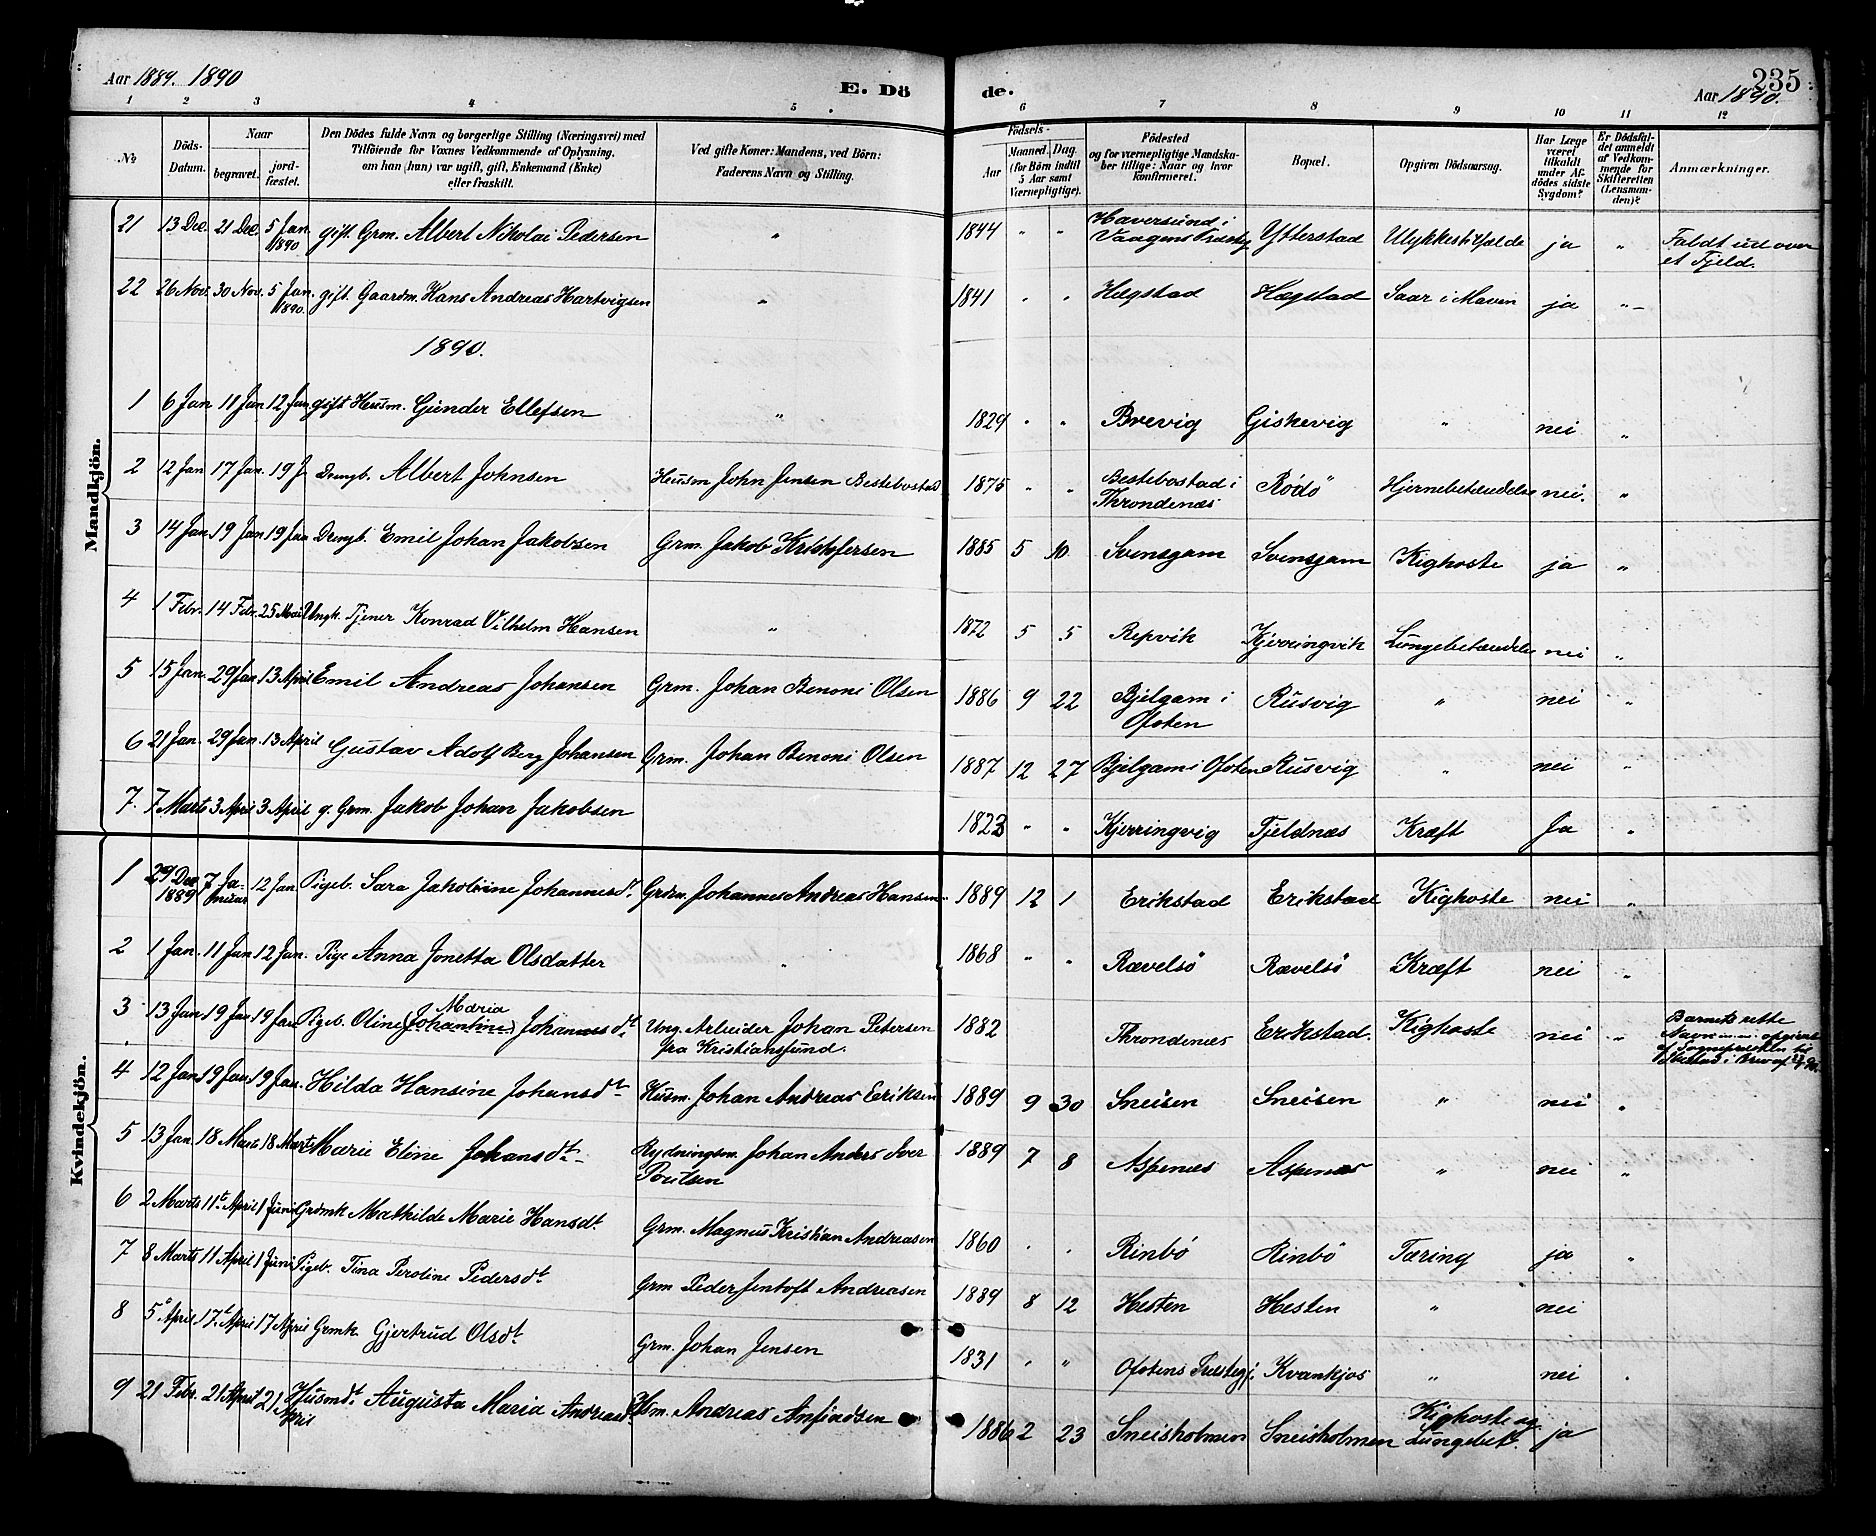 Aar 1889. 1890
E. Dö
de.
235
Aar 1890.
1 2 3 4 5 6 7 8 9 10 11 12
№
Döds-Datum.
Naar
begravet.
jord-fæstet.
Den Dödes fulde Navn og borgerlige Stilling (Næringsvei) med
Tilföiende for Voxnes Vedkommende af Oplysning,
om han (hun) var ugift, gift, Enkemand (Enke)
eller fraskilt.
Ved gifte Koner: Mandens, ved Börn:
Faderens Navn og Stilling.
Födsels-
Aar
Maaned. Dag.
(for Börn indtil
5 Aar samt
Værnepligtige).
Födested
og for værnepligtige Mandska-
ber tillige: Naar og hvor
konfirmeret.
Bopæl.
Opgiven Dödsaarsag.
Har Læge
været
tilkaldt
under Af-
dödes sidste
Sygdom?
Er Dödsfal-
det anmeldt
af Vedkom-
mende for
Skifteretten
(Lensman-
den)?
Anmærkninger.
Mandkjön.
21 13 Dec. 21 Dec. 5 Jan. 1890 gift. Grm. Albert Nikolai Pedersen " 1844 " " Haversund i Vaagens Præstg. Ytterstad Ulykkestilfælde ja " Faldt ud over et Fjeld.
22 26 Nov. 30 Nov. 5 Jan. 1890. gift. Gaardm. Hans Andreas Hartvigsen " 1841 " " Hægstad Hægstad Saar i Maven ja "
1890.
1 6 Jan 11 Jan 12 Jan gift Husm. Gunder Ellefsen " 1829 " " Brevig Giskevig " nei "
2 12 Jan 17 Jan. 19 J Drengb. Albert Johnsen Husm John Jensen Bestebostad 1875 " " Bestebostad i Throndenæs Rödö Hjernebetændelse nei. "
3 14 Jan 19 Jan 19 Jan Drengb. Emil Johan Jakobsen Grm. Jakob Kristofersen 1885 5 10 Svensgam Svensgam Kighoste ja "
4 1 Febr. 14 Febr. 25 Mai Ungk. Tjener Konrad Vilhelm Hansen " 1872 5 5 Repvik Kjerringvik Lungebetændelse nei "
5 15 Jan. 29 Jan. 13 April Emil Andreas Johansen Grm. Johan Benoni Olsen 1886 9 22 Bjelgam i Ofoten Rusvig " nei "
6 21 Jan. 29 Jan. 13 April Gustav Adolf Berg Johansen Grm. Johan Benoni Olsen 1887 12 27 Bjelgam i Ofoten Rusvig " nei "
7. 7 Marts 3 April 3 April g. Grm. Jakob Johan Jakobsen 1823 " " Kjerringvig Fjeldnæs Kræft Ja "
Kvindekjön.
1 29 Dec 1889 7 Januar 12 Jan Pigeb. Sara Jakobine Johannesdt. Grdm. Johannes Andreas Hansen 1889 12 1 Erikstad Erikstad Kighoste nei "
2 1 Jan. 11 Jan 12 Jan. Pige Anna Jonetta Olsdatter " 1868 " " Rævelsö Rævelsö Kræft nei "
3 13 Jan 19 Jan 19 Jan Pigeb. Oline (Johantine) Maria Johannesdt. Ung. Arbeider Johan Petersen fra Kristiansund. 1882 Throndenæs Erikstad. Kighoste nei " Barnets rette Navn opgivet af Sognepresten
4 12 Jan 19 Jan 19 Jan. Hilda Hansine Johansdt. Husm. Johan Andreas Eriksen 1889 9 30 Sneisen Sneisen " nei "
5 13 Jan. 18 Marts 18 Marts Marie Eline Johansdt. Rydningsm. Johan Anders Iver Poulsen 1889 7 8 Aspenæs Aspenæs " nei "
6 2 Marts 11t. April 1 Juni Grdmk Mathilde Marie Hansdt. Grm. Magnus Kristian Andreasen 1860 " " Rinbö Rinbö Tæring ja "
7 8 Marts 11 April 1 Juni Pigeb. Tina Peroline Pedersdt. Grm Peder Jentoft Andreasen 1889 8 12 Hesten Hesten " nei
8 5 April 17t. April 17 April Grmk. Gjertrud Olsdt. Grm. Johan Jensen 1831 " " Ofotens Præstegj. Kvankjos " nei "
9 21 Febr. 21 April 21 April Husmdt. Augusta Maria Andreasdt. Hsm. Andreas Anfindsen 1886 2 23 Sneisholmen Sneisholmen Kighoste og Lungebet. ja